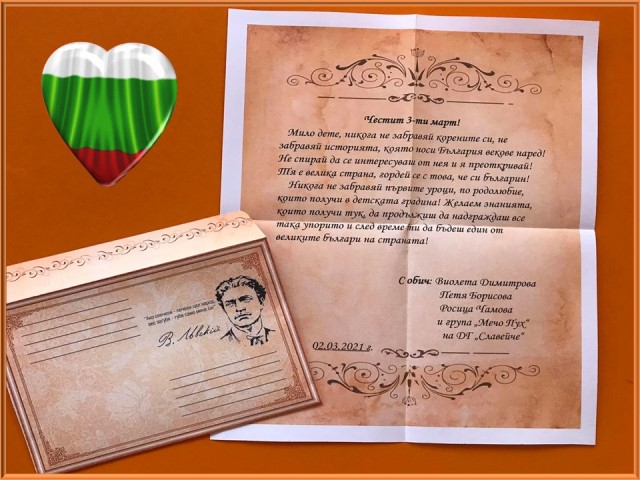 Честит 3-ти март!
Мило дете, никога не забравяй корените си, не
забравяй историята, която носи България векове наред!
Не спирай да се интересуваш от нея и я преоткривай!
Тя е велика страна, гордей се с това, че си българин!
Никога не забравяй първите уроци, по родолюбие,
които получи в детската градина! Желаем знанията,
които получи тук, да продължиш да надграждаш все
така упорито и след време ти да бъдеш един от
великите българи на страната!
С обич: Виолета Димитрова
Петя Борисова
Росица Чамова
и група „Мечо Пух“
на ДГ „Славейче“
02.03.2021 г.
"Ако спечеля - печели цял народ,
ако загубя - губя само мене си"
В. Лѣвскій